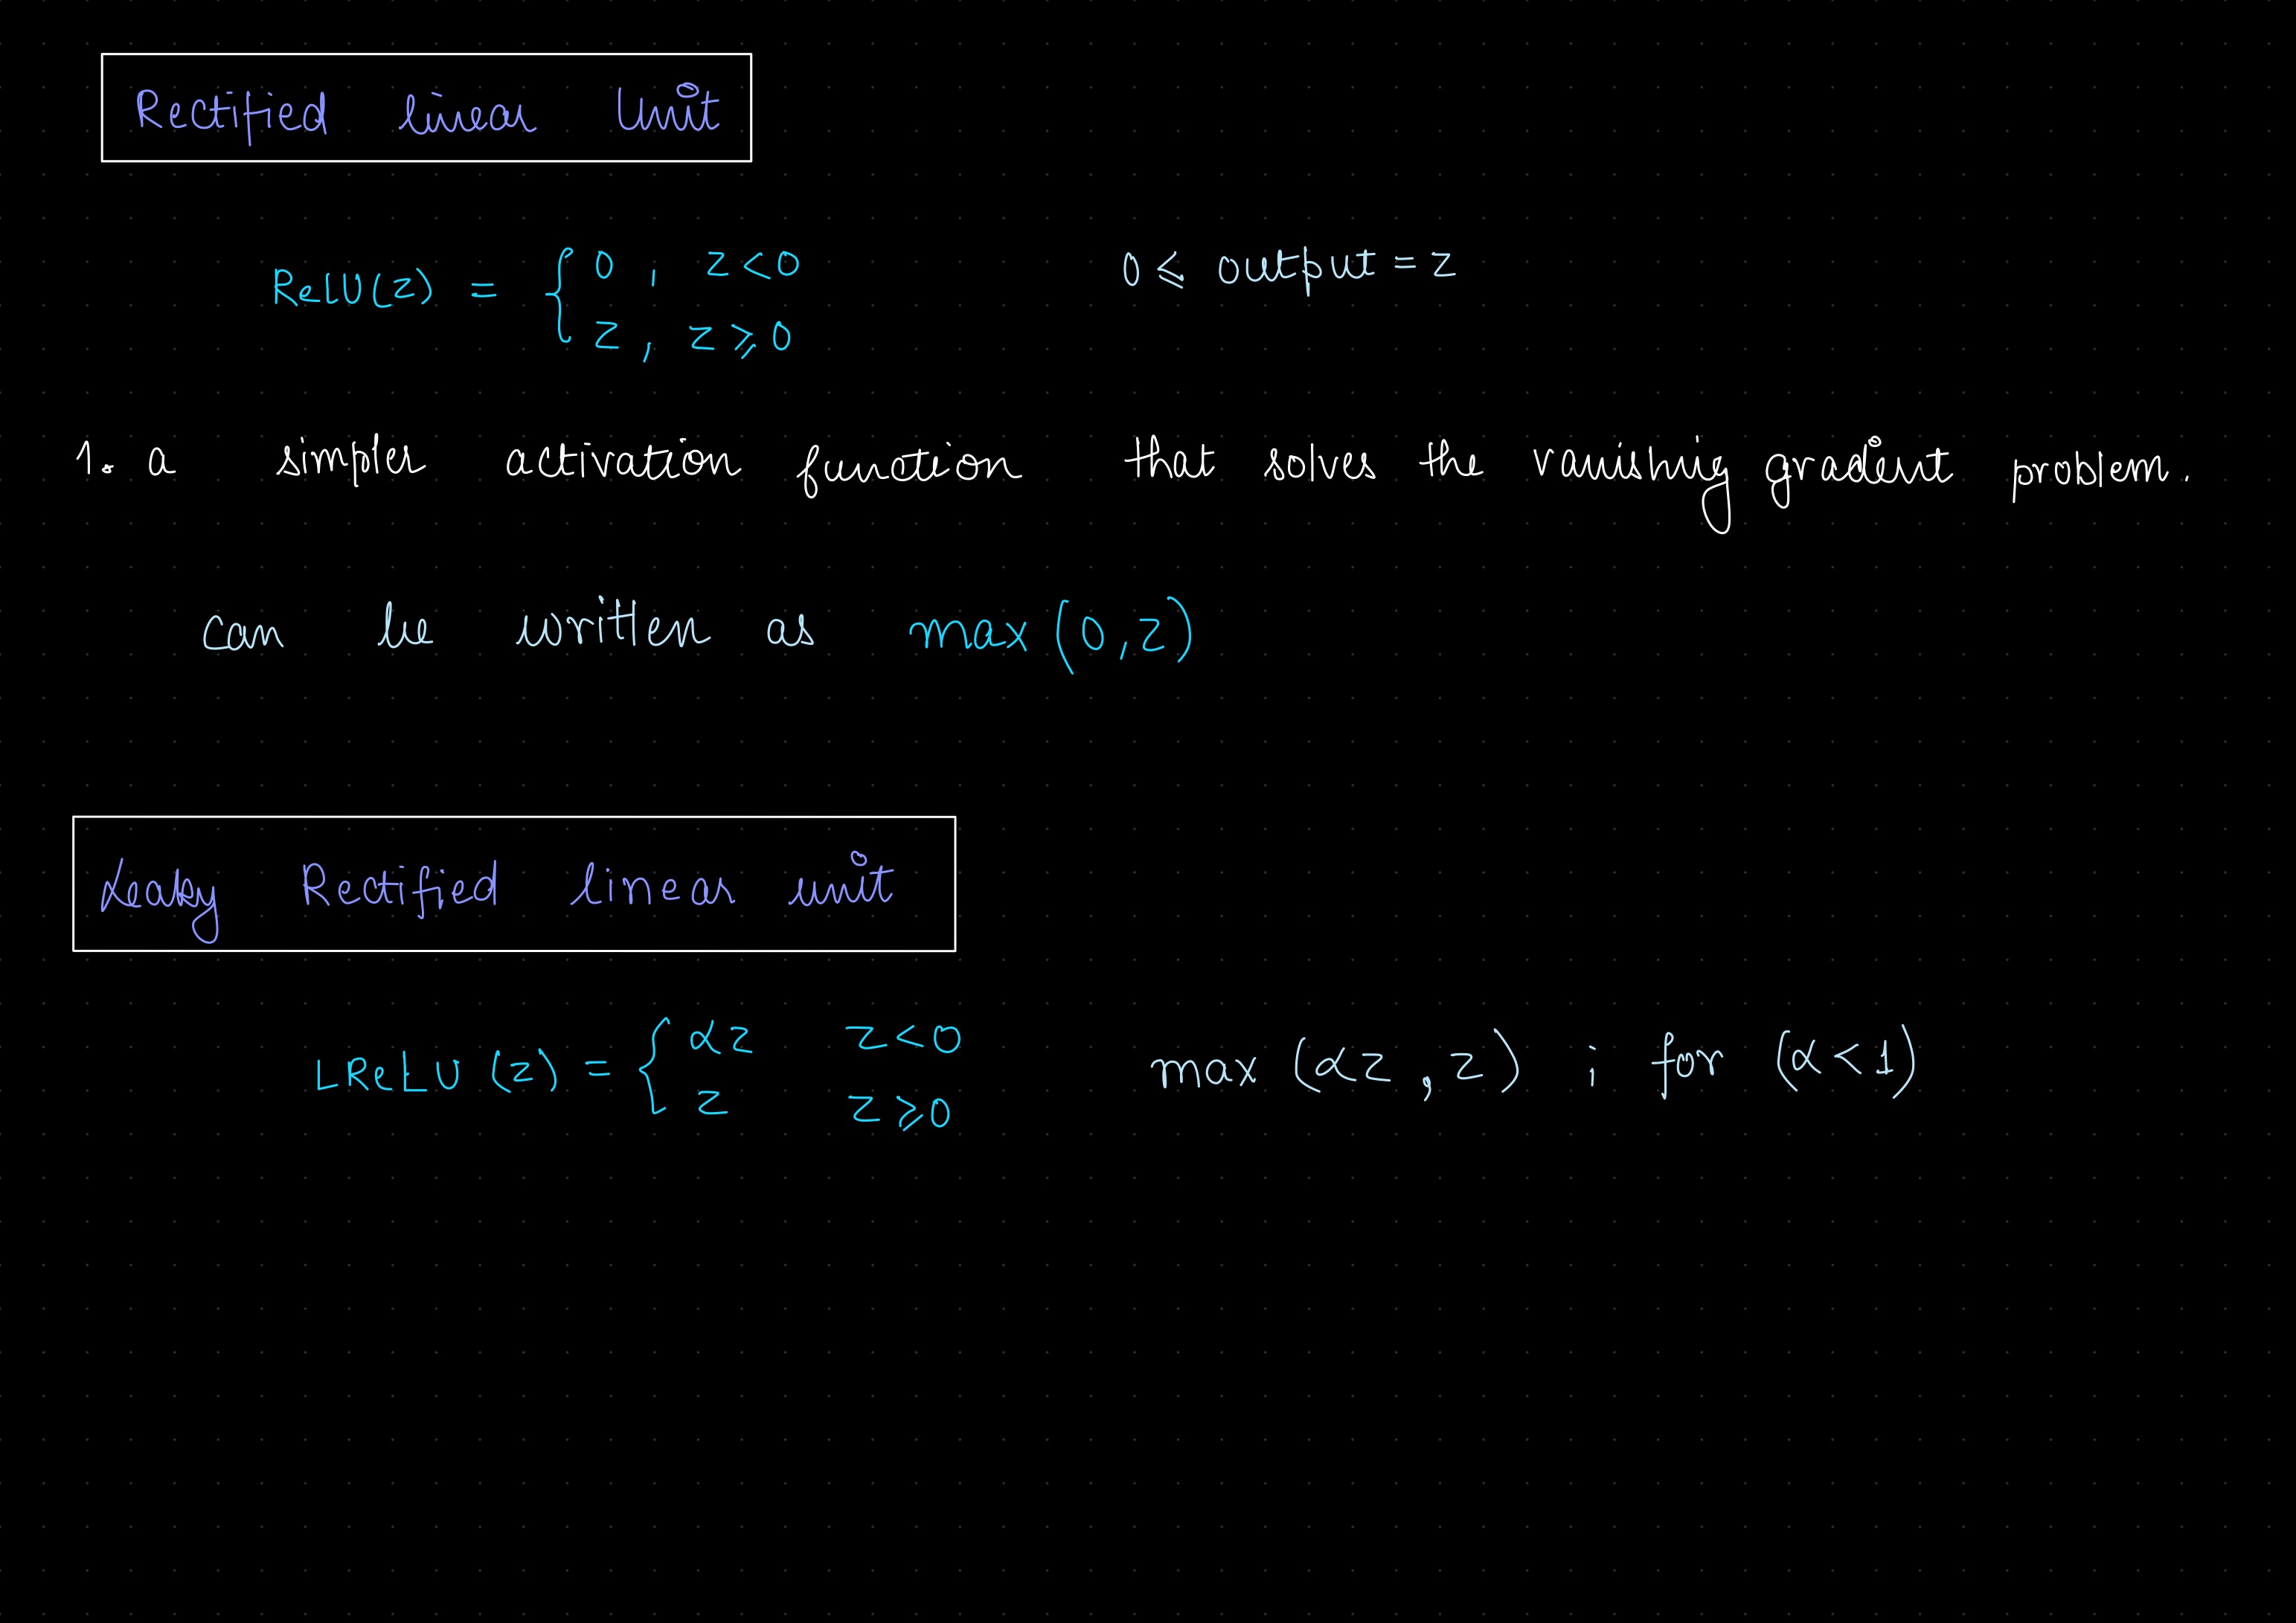 Rectified linear Unit
ReLU(z) = { 0 , z<0
z , z⩾0
0 ⩽ output = z
1. a simpler activation function that solves the vanishing gradient problem.
can be written as max(0,z)
Leaky Rectified linear unit
LReLU(z) = { αz z<0
z z⩾0
max(αz,z) ; for (α<1)